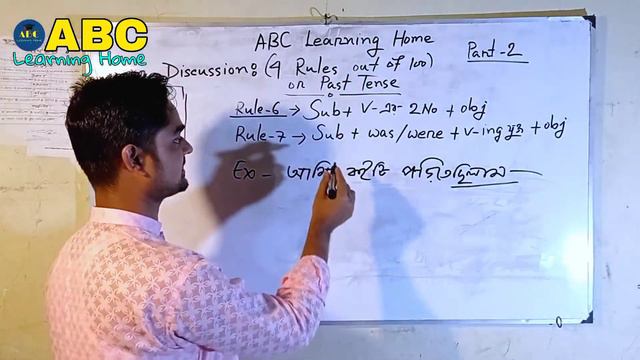 ABC
Learning Home
ABC Learning Home
Part-2
Discussion: (9 Rules out of 100)
on Past Tense
Rule-6 → Sub + V-এর 2No + obj
Rule-7 → Sub + was/were + v-ing যুক্ত + obj
Ex - আমি বইটি পড়িতেছিলাম